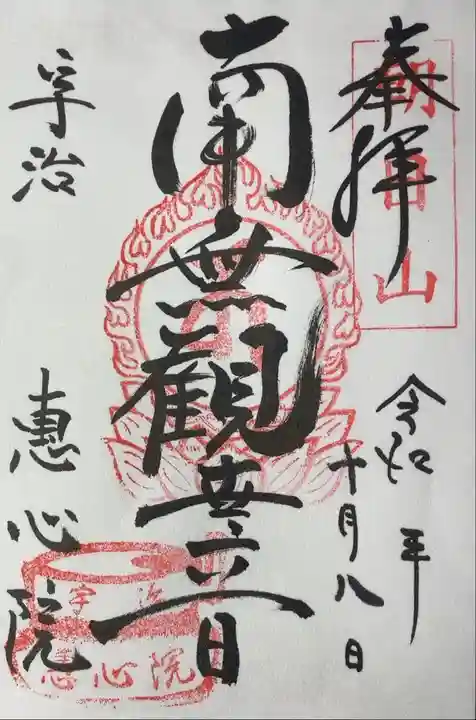 奉拝
朝日山
令和 年
十月八日
南無観世音
宇治 恵心院
宇治
恵心院